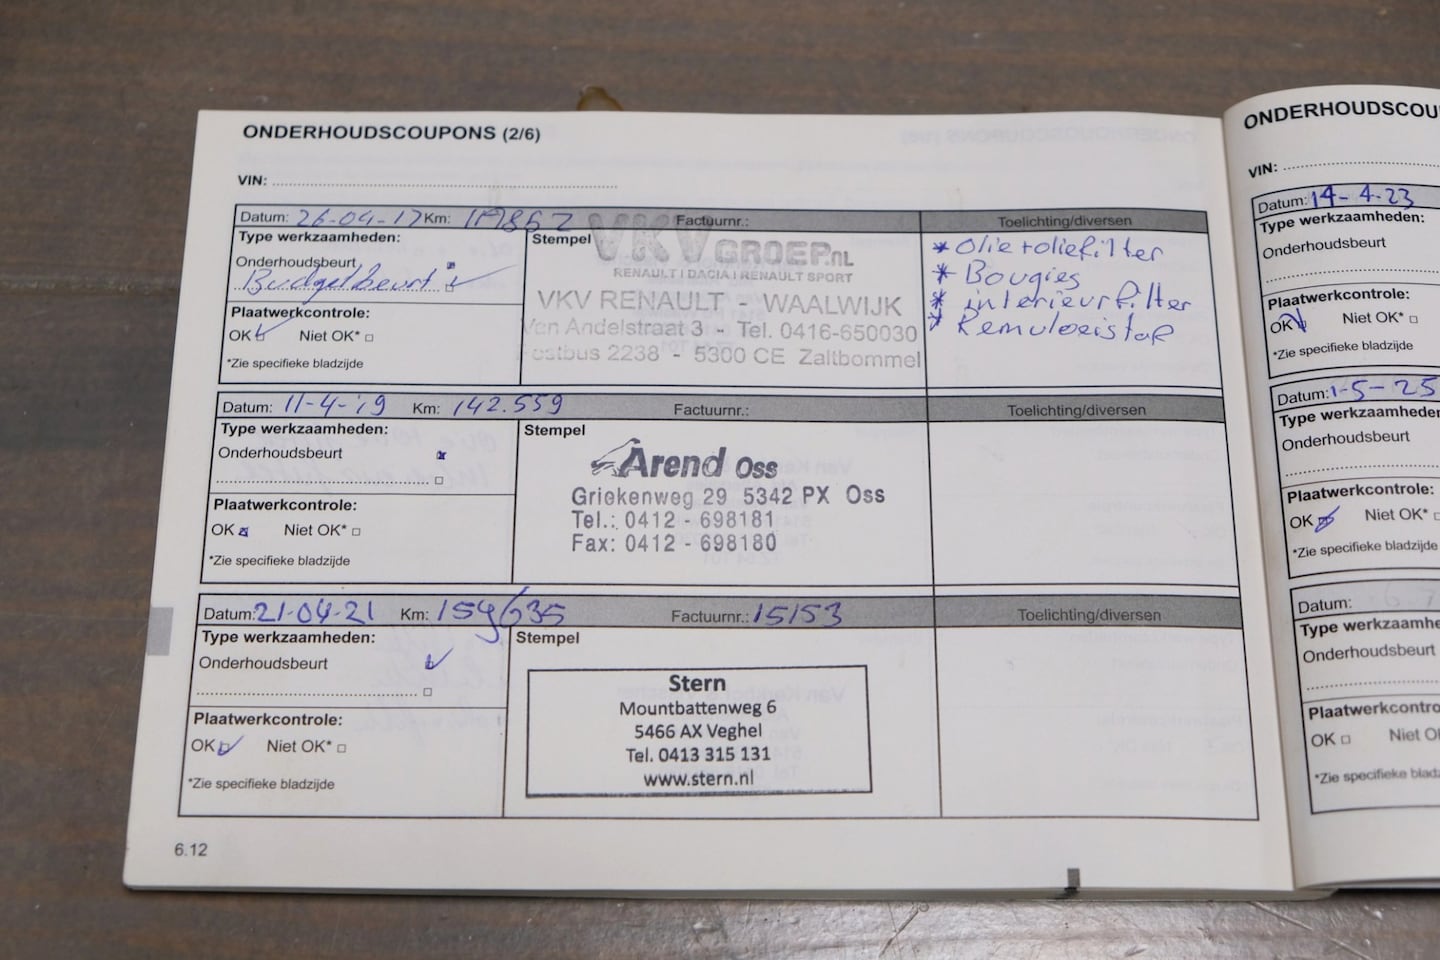 ONDERHOUDSCOUPONS (2/6)
VIN:
Datum: 26-04-17 Km: Factuurnr.: Toelichting/diversen
Type werkzaamheden:
Onderhoudsbeurt
Budgetbeurt
Plaatwerkcontrole:
OK Niet OK*
*Zie specifieke bladzijde
Stempel
VKV GROEP.NL
RENAULT | DACIA | RENAULT SPORT
VKV RENAULT - WAALWIJK
Van Andelstraat 3 - Tel. 0416-650030
Postbus 2238 - 5300 CE Zaltbommel
* Olie+oliefilter
* Bougies
* interieurfilter
* Remvloeistof
Datum: 11-4-19 Km: 142.559 Factuurnr.: Toelichting/diversen
Type werkzaamheden:
Onderhoudsbeurt
Plaatwerkcontrole:
OK Niet OK*
*Zie specifieke bladzijde
Stempel
Arend Oss
Griekenweg 29 5342 PX Oss
Tel.: 0412 - 698181
Fax: 0412 - 698180
Datum: 21-04-21 Km: Factuurnr.: 15153 Toelichting/diversen
Type werkzaamheden:
Onderhoudsbeurt
Plaatwerkcontrole:
OK Niet OK*
*Zie specifieke bladzijde
Stempel
Stern
Mountbattenweg 6
5466 AX Veghel
Tel. 0413 315 131
www.stern.nl
6.12
ONDERHOUDSCOU
VIN:
Datum: 14-4-23
Type werkzaamheden:
Onderhoudsbeurt
Plaatwerkcontrole:
OK Niet OK*
*Zie specifieke bladzijde
Datum: 1-5-25
Type werkzaamheden
Onderhoudsbeurt
Plaatwerkcontrole:
OK Niet OK*
*Zie specifieke bladzijde
Datum:
Type werkzaamhe
Onderhoudsbeurt
Plaatwerkcontro
OK Niet O
*Zie specifieke bladz